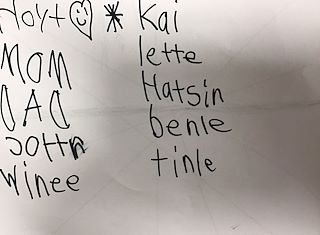 Hoyt
MOM
DAD
winee
Kai
lette
Hatsin
benle
tinle